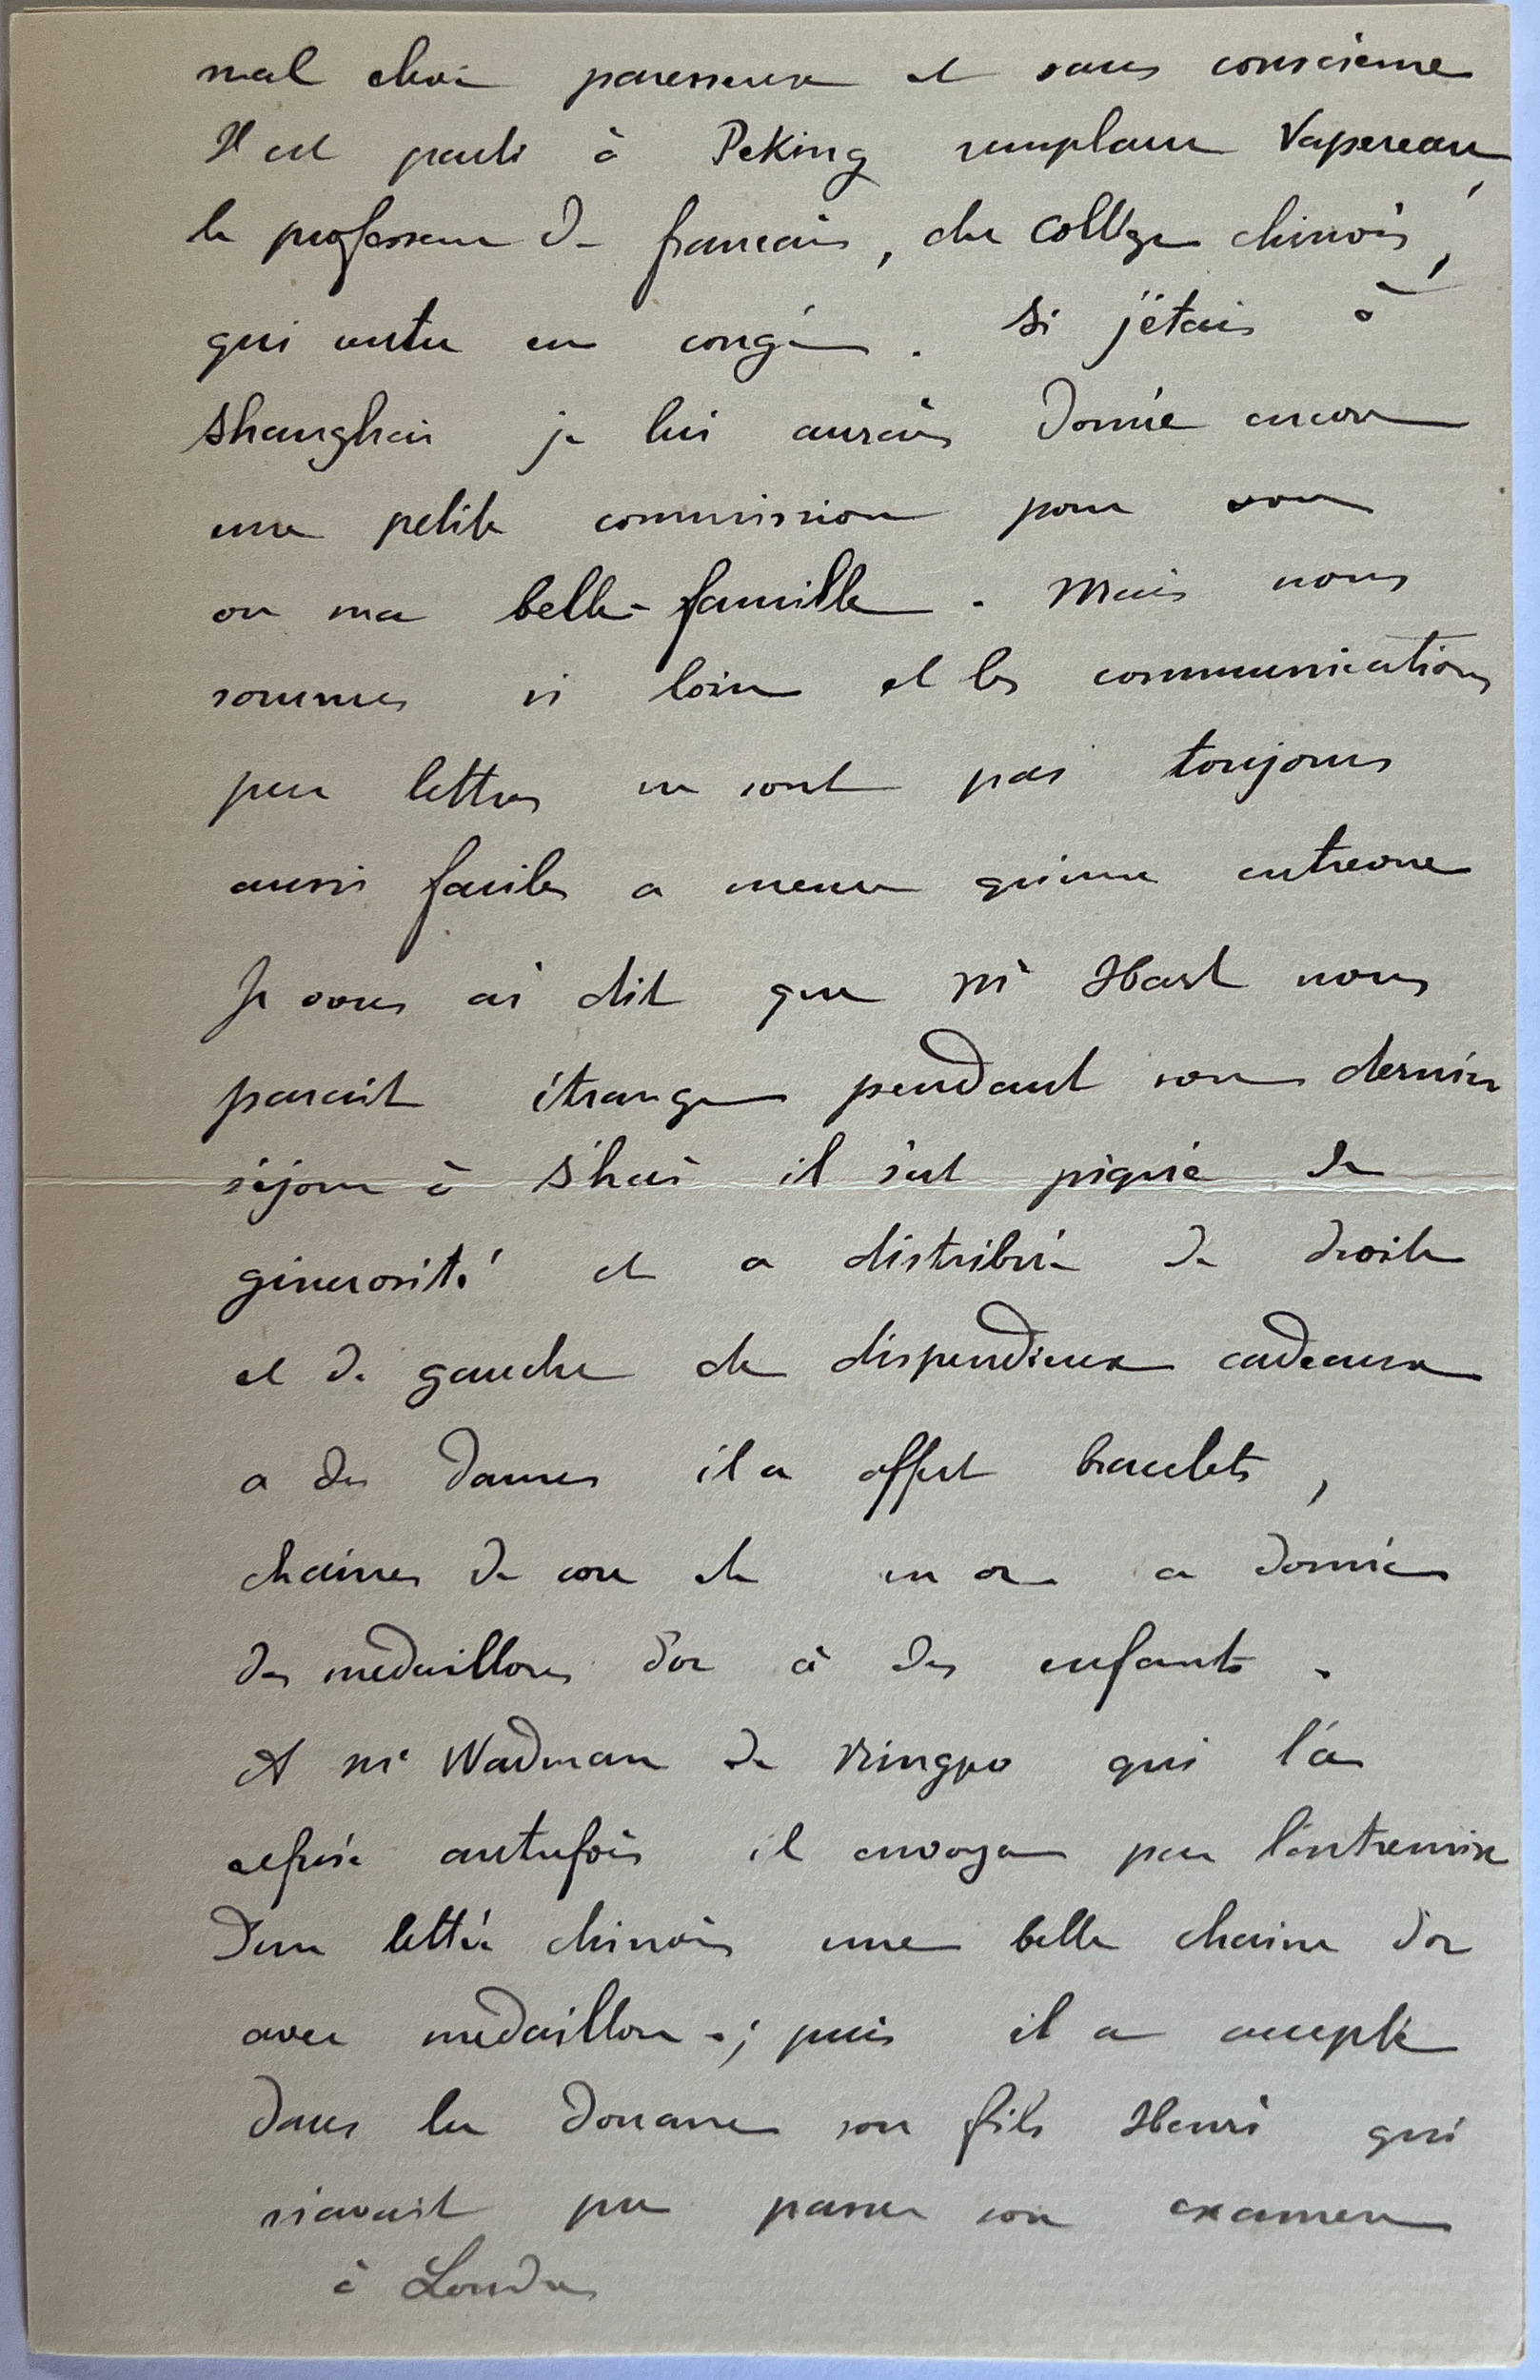 mal choisi paresseux et sans conscience
Il est parti à Peking remplacer Vapereau,
le professeur de francais, du Collège chinois,
qui rentre en congé. Si j'étais à
Shanghai je lui aurais donné encore
une petite commission pour vous
ou ma belle-famille. Mais nous
sommes si loin et les communications
par lettres ne sont pas toujours
aussi faciles a mener qu'une entrevue
Je vous ai dit que Mr Hart nous
parait étrange pendant son dernier
séjour à S'hai il s'est piqué de
générosité et a distribué de droite
et de gauche de dispendieux cadeaux
a des dames il a offert bracelets,
chaines de cou etc en or a donné
des medaillons d'or à des enfants.
A Me Wadman de Ningpo qui l'a
refusé autrefois il envoya par l'entremise
d'un lettré chinois une belle chaine d'or
avec medaillon.; puis il a accepté
dans la douane son fils Henri qui
n'avait pu passer son examen
à Londres